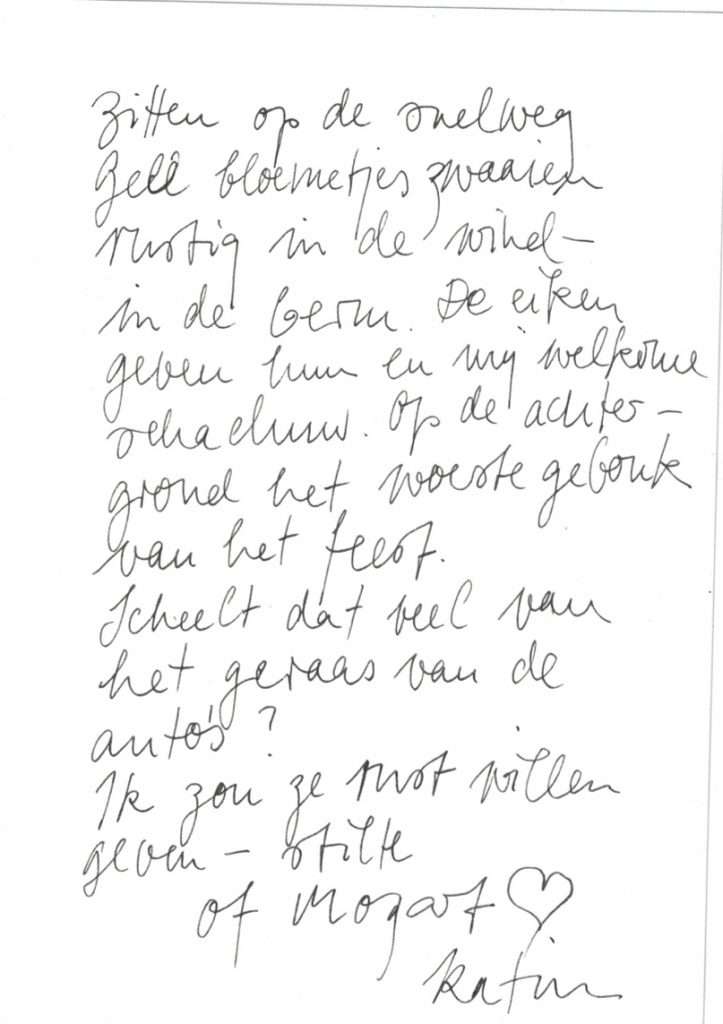 Zitten op de snelweg
Gele bloemetjes zwaaien
rustig in de wind -
in de berm. De eiken
geven hun en mij welkome
schaduw. Op de achter -
grond het woeste gebonk
van het feest.
Scheelt dat veel van
het geraas van de
auto's?
Ik zou ze rust willen
geven - stilte
of Mozart ♡
Katrin